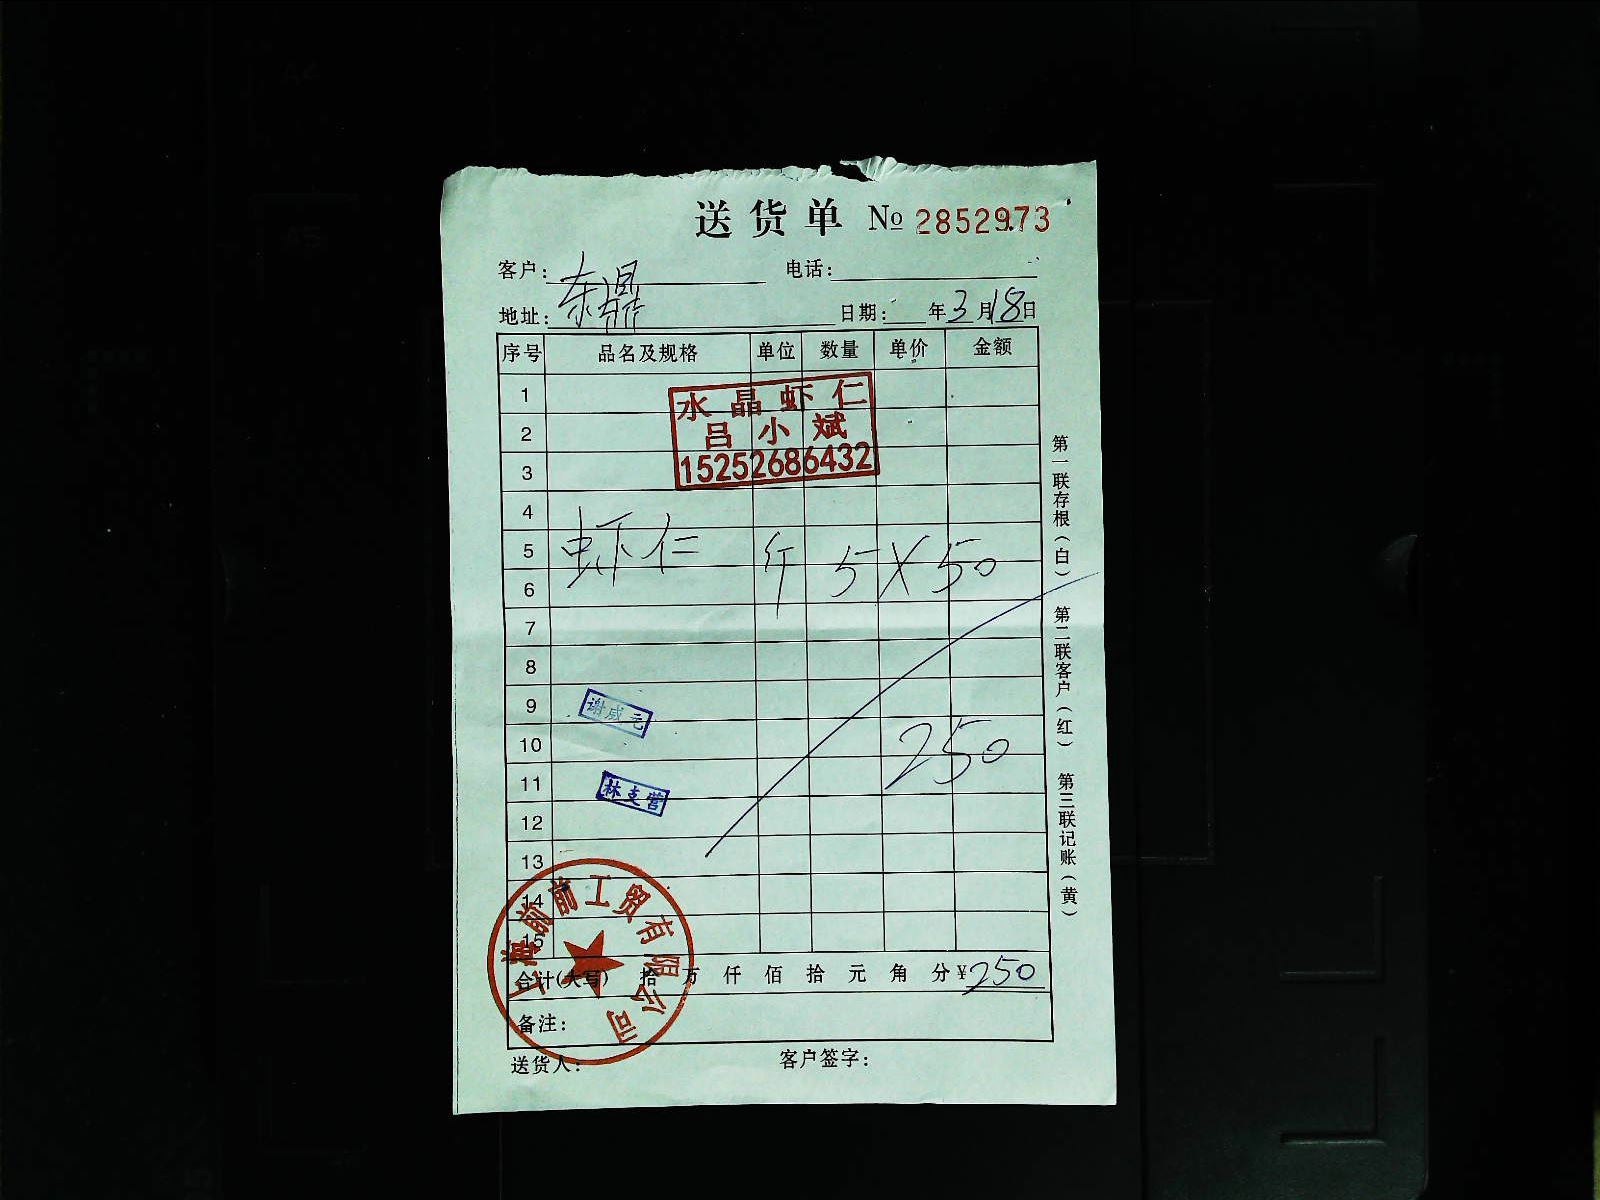 送货单 № 2852973
客户: 东鼎 电话:
地址: 日期: 年3月18日
序号 品名及规格 单位 数量 单价 金额
水晶虾仁
吕小斌
15252686432
1
2
3
4
5 虾仁 斤 5 X 50
6
7
8
9 谢咸元
10 250
11 林支营
12
13
14
15
合计(大写) 拾 万 仟 佰 拾 元 角 分 ¥250
备注:
上海前前工贸有限公司
送货人: 客户签字:
第一联存根(白) 第二联客户(红) 第三联记账(黄)